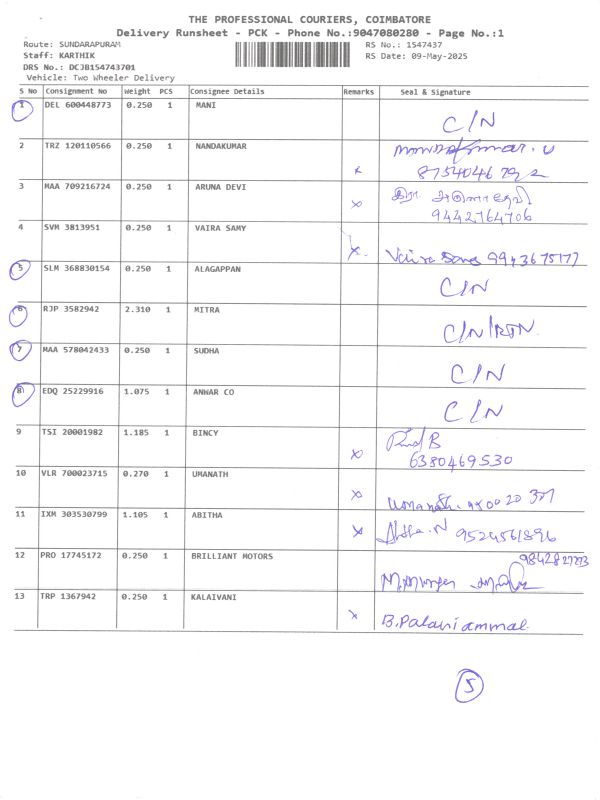 THE PROFESSIONAL COURIERS, COIMBATORE
Delivery Runsheet - PCK - Phone No.:9047080280 - Page No.:1
Route: SUNDARAPURAM RS No.: 1547437
Staff: KARTHIK RS Date: 09-May-2025
DRS No.: DCJB154743701
Vehicle: Two Wheeler Delivery
S No Consignment No Weight PCS Consignee Details Remarks Seal & Signature
1 DEL 600448773 0.250 1 MANI
C/N
2 TRZ 120110566 0.250 1 NANDAKUMAR
x
3 MAA 709216724 0.250 1 ARUNA DEVI
x
9442764706
4 SVM 3813951 0.250 1 VAIRA SAMY
x.
5 SLM 368830154 0.250 1 ALAGAPPAN
C/N
6 RJP 3582942 2.310 1 MITRA
C/N/RTN.
7 MAA 578042433 0.250 1 SUDHA
C/N
8 EDQ 25229916 1.075 1 ANWAR CO
C/N
9 TSI 20001982 1.185 1 BINCY
x 6380469530
10 VLR 700023715 0.270 1 UMANATH
x Umanath.
11 IXM 303530799 1.105 1 ABITHA
x 9524561896
12 PRO 17745172 0.250 1 BRILLIANT MOTORS
13 TRP 1367942 0.250 1 KALAIVANI
x B.Palaniammal
5